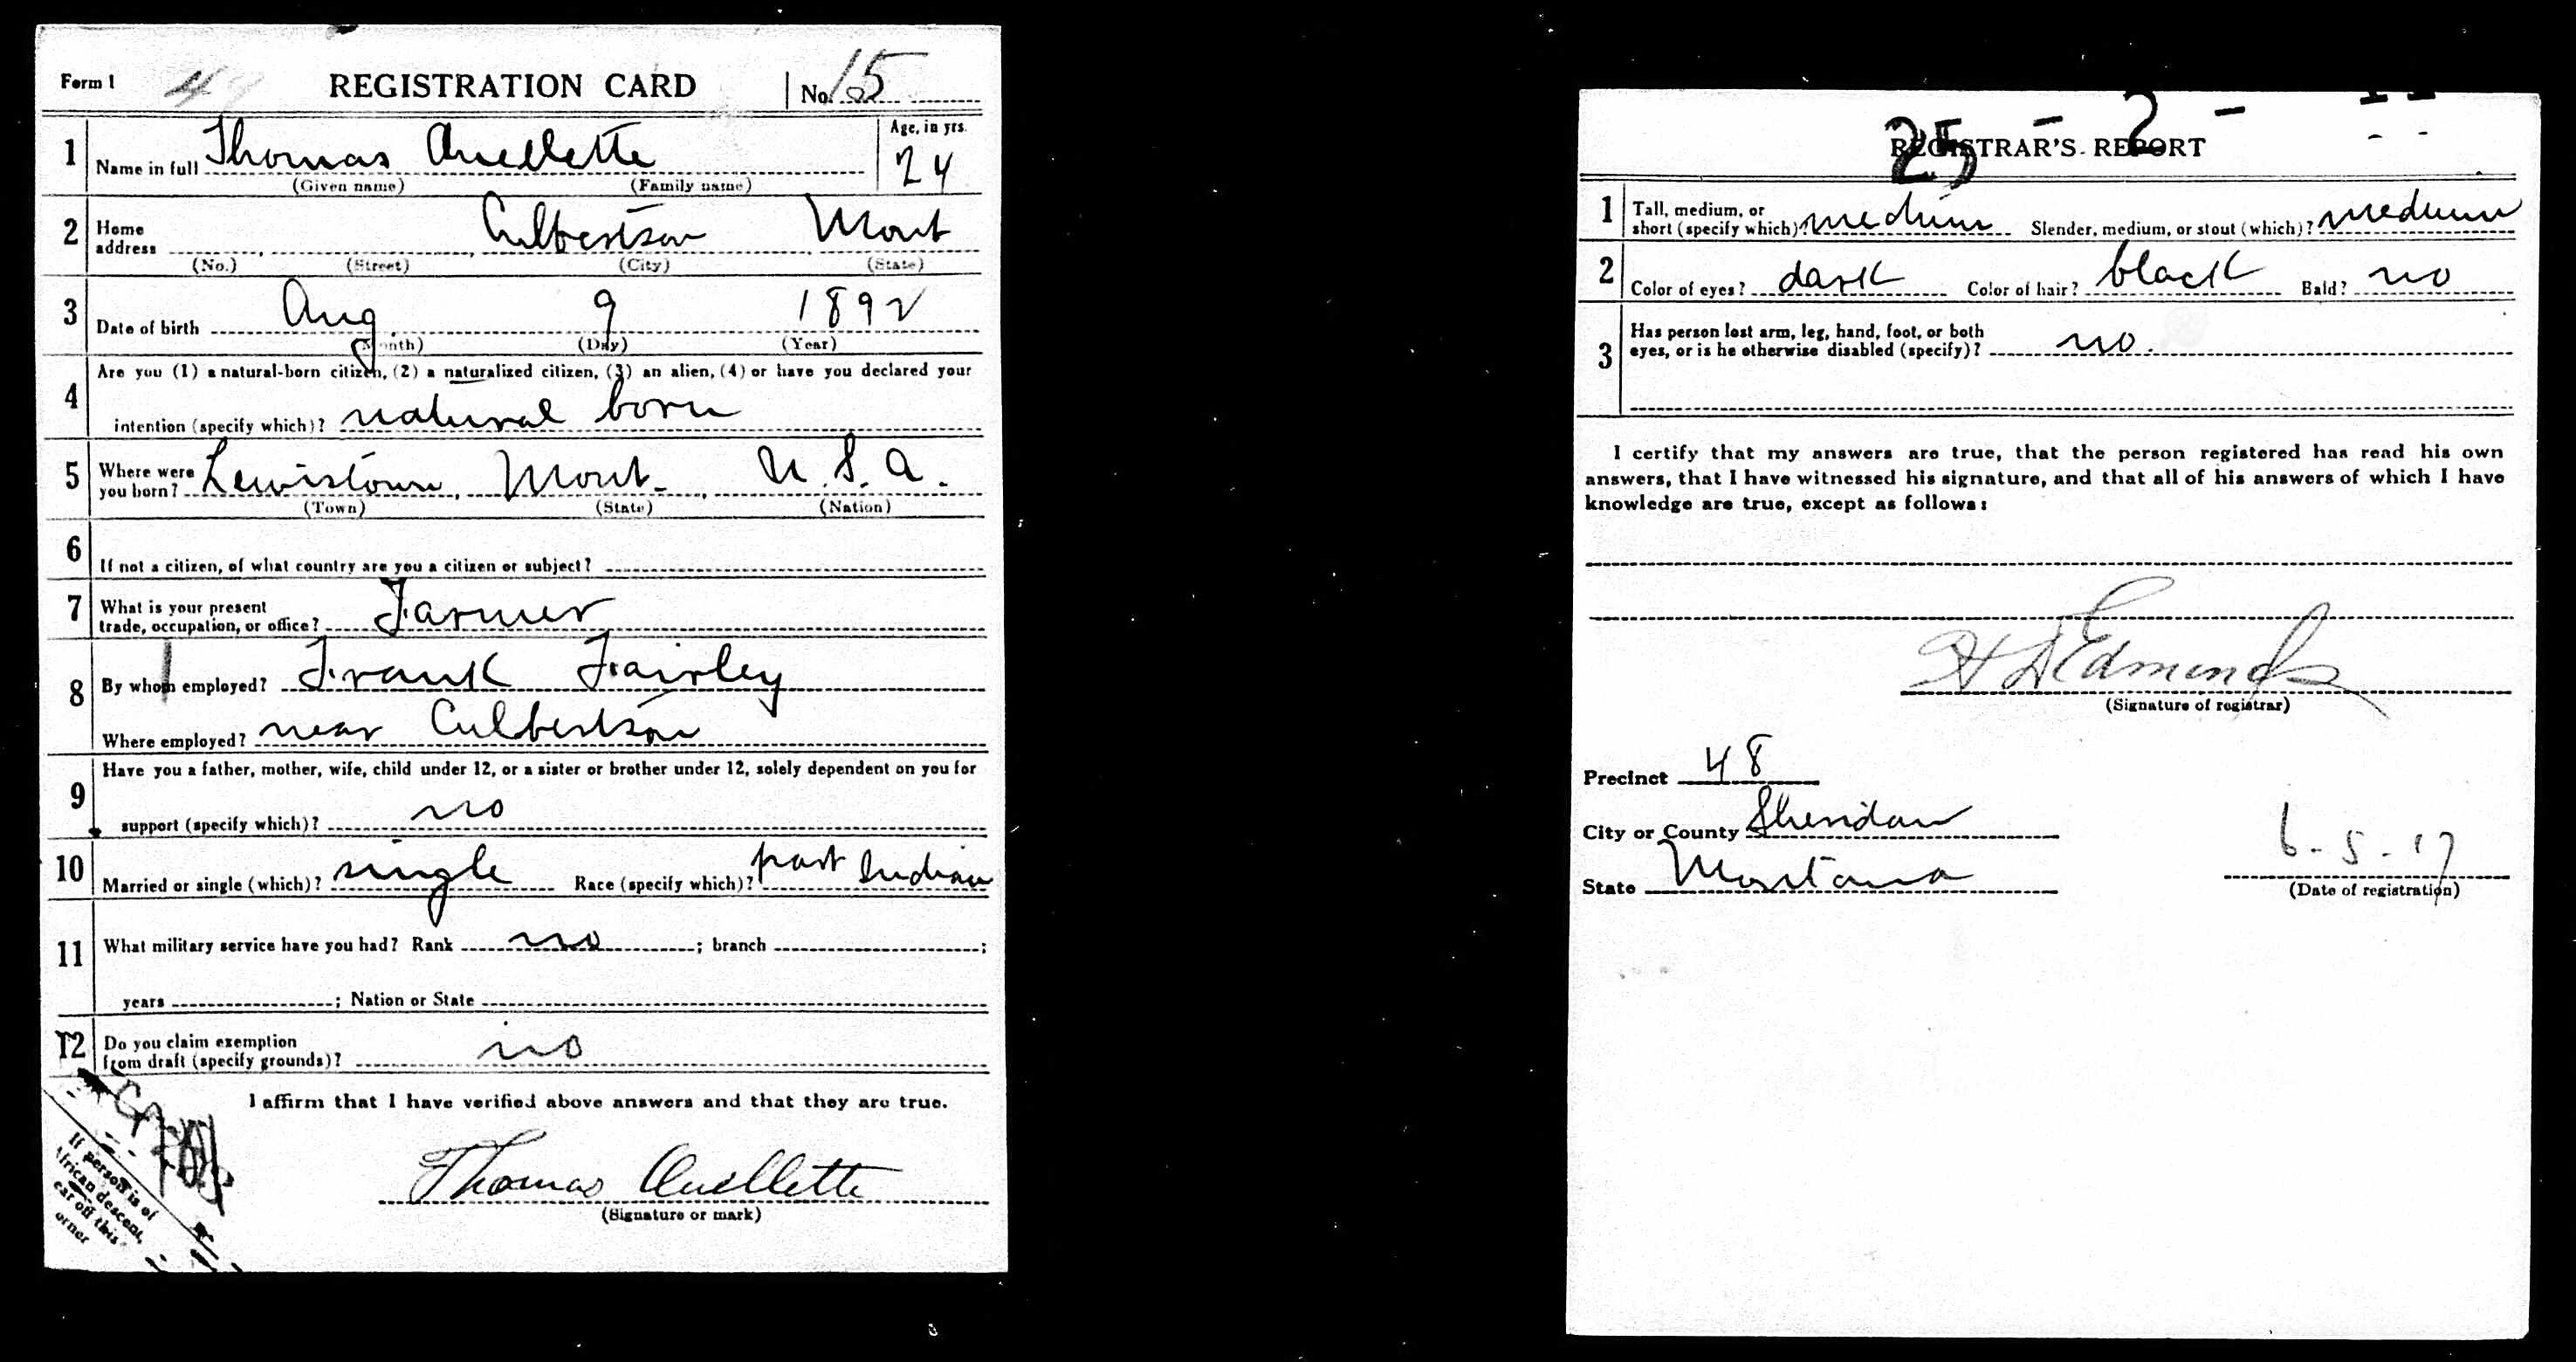 Form 1 REGISTRATION CARD No. 15
1 Name in full Thomas Ouellette Age, in yrs. 24
(Given name) (Family name)
2 Home address Culbertson Mont
(No.) (Street) (City) (State)
3 Date of birth Aug. 9 1892
(Month) (Day) (Year)
4 Are you (1) a natural-born citizen, (2) a naturalized citizen, (3) an alien, (4) or have you declared your
intention (specify which)? natural born
5 Where were you born? Lewistown, Mont., U.S.A.
(Town) (State) (Nation)
6 If not a citizen, of what country are you a citizen or subject?
7 What is your present trade, occupation, or office? Farmer
8 By whom employed? Frank Fairley
Where employed? near Culbertson
9 Have you a father, mother, wife, child under 12, or a sister or brother under 12, solely dependent on you for
support (specify which)? no
10 Married or single (which)? single Race (specify which)? part Indian
11 What military service have you had? Rank no ; branch ;
years ; Nation or State
12 Do you claim exemption from draft (specify grounds)? no
I affirm that I have verified above answers and that they are true.
Thomas Ouellette
(Signature or mark)
If person is of
African descent,
tear off this
corner
25 - 2 -
REGISTRAR'S REPORT
1 Tall, medium, or short (specify which)? medium Slender, medium, or stout (which)? medium
2 Color of eyes? dark Color of hair? black Bald? no
3 Has person lost arm, leg, hand, foot, or both
eyes, or is he otherwise disabled (specify)? no.
I certify that my answers are true, that the person registered has read his own
answers, that I have witnessed his signature, and that all of his answers of which I have
knowledge are true, except as follows:
Edmonds
(Signature of registrar)
Precinct 48
City or County Sheridan
State Montana
6-5-17
(Date of registration)